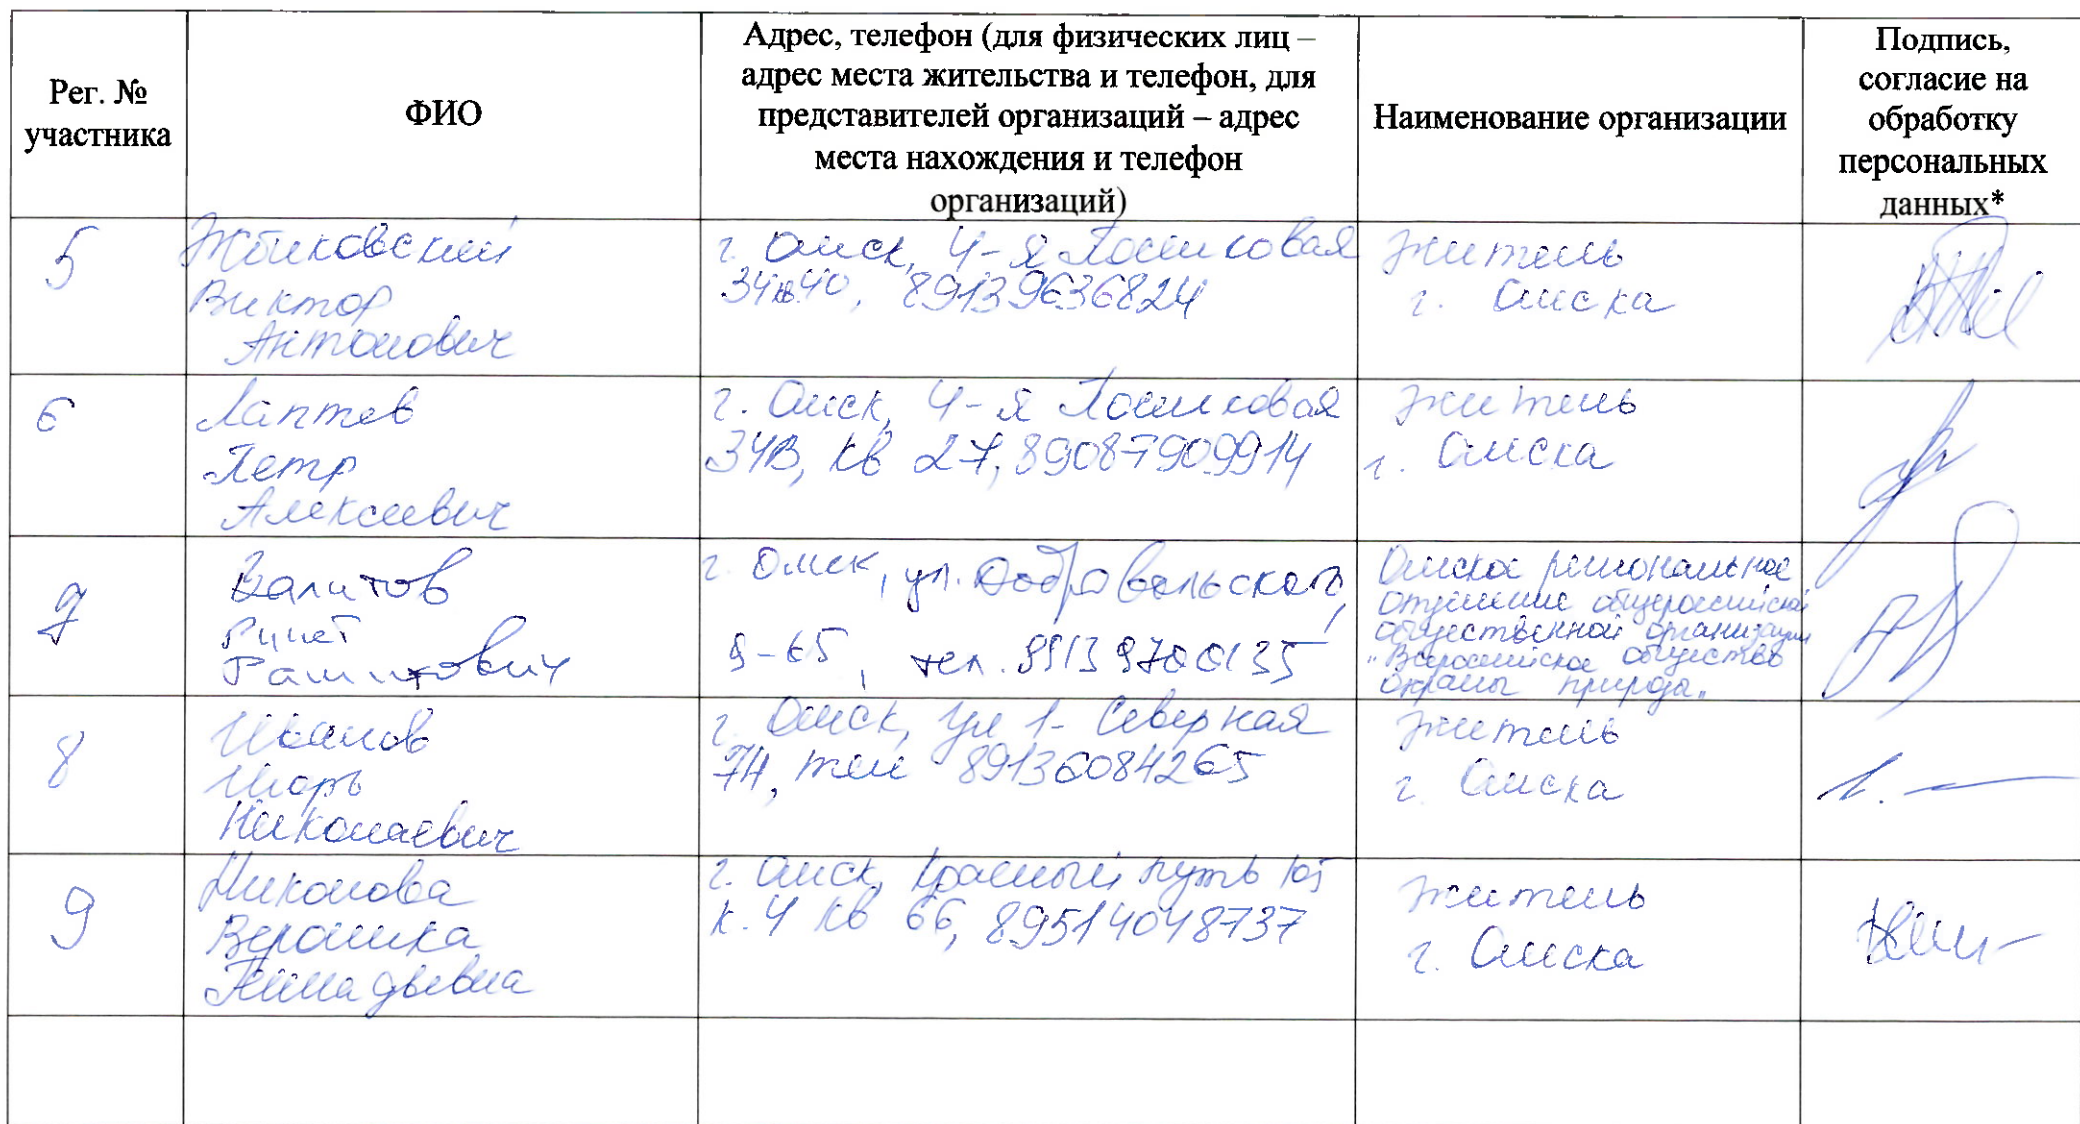 Рег. №
участника
ФИО
Адрес, телефон (для физических лиц –
адрес места жительства и телефон, для
представителей организаций – адрес
места нахождения и телефон
организаций)
Наименование организации
Подпись,
согласие на
обработку
персональных
данных*
5
Жбиковский
Виктор
Антонович
г. Омск, 4-я Поселковая
34 40, 89139636824
житель
г. Омска
6
Лаптев
Петр
Алексеевич
г. Омск, 4-я Поселковая
34В, кв 27, 89087909914
житель
г. Омска
7
Валитов
Ринат
Рашитович
г. Омск, ул. Добровольского,
9-65, тел. 89139700135
Омское региональное
отделение общероссийской
общественной организации
"Всероссийское общество
охраны природы"
8
Иванов
Игорь
Николаевич
г. Омск, ул 1- Северная
74, тел 89136084265
житель
г. Омска
9
Никонова
Вероника
Геннадьевна
г. Омск, Красный путь 105
к. 4 кв 66, 89514048737
житель
г. Омска